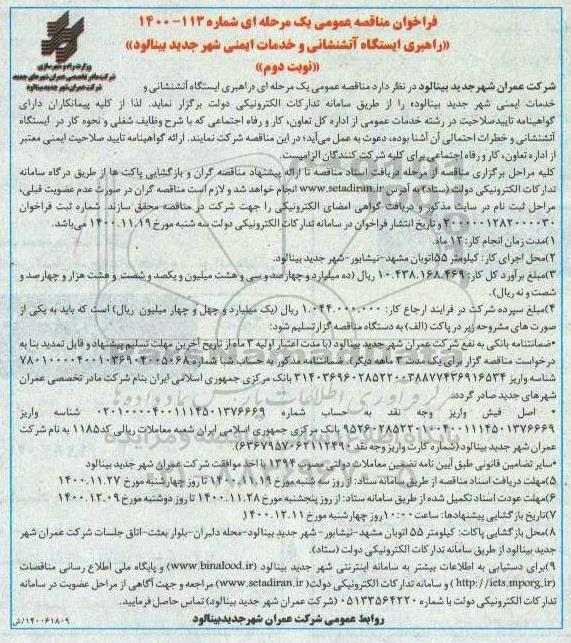 فراخوان مناقصه عمومی یک مرحله ای شماره ۱۱۳-۱۴۰۰
«راهبری ایستگاه آتشنشانی و خدمات ایمنی شهر جدید بینالود»
«نوبت دوم»
وزارت راه و شهرسازی
شرکت مادر تخصصی عمران شهرهای جدید
شرکت عمران شهر جدید بینالود
شرکت عمران شهر جدید بینالود در نظر دارد مناقصه عمومی یک مرحله ای «راهبری ایستگاه آتشنشانی و
خدمات ایمنی شهر جدید بینالود» را از طریق سامانه تدارکات الکترونیکی دولت برگزار نماید. لذا از کلیه پیمانکاران دارای
گواهینامه تایید صلاحیت در رشته خدمات عمومی از اداره کل تعاون، کار و رفاه اجتماعی که با شرح وظایف شغلی و نحوه کار در ایستگاه
آتشنشانی و خطرات احتمالی آن آشنا بوده، دعوت به عمل می‌آید؛ در این مناقصه شرکت نمایند. ارائه گواهینامه تایید صلاحیت ایمنی معتبر
از اداره تعاون، کار و رفاه اجتماعی برای کلیه شرکت کنندگان الزامیست.
کلیه مراحل برگزاری مناقصه از مرحله دریافت اسناد مناقصه تا ارائه پیشنهاد مناقصه گران و بازگشایی پاکت ها از طریق درگاه سامانه
تدارکات الکترونیکی دولت (ستاد) به آدرس www.setadiran.ir انجام خواهد شد و لازم است مناقصه گران در صورت عدم عضویت قبلی،
مراحل ثبت نام در سایت مذکور و دریافت گواهی امضای الکترونیکی را جهت شرکت در مناقصه محقق سازند. شماره ثبت فراخوان
۲۰۰۰۰۰۱۲۸۲۰۰۰۰۳۰ و تاریخ انتشار فراخوان در سامانه تدارکات الکترونیکی دولت سه شنبه مورخ ۱۴۰۰.۱۱.۱۹ می‌باشد.
۱)مدت زمان انجام کار: ۱۲ ماه.
۲)محل اجرای کار: کیلومتر ۵۵ اتوبان مشهد-نیشابور-شهر جدید بینالود.
۳)مبلغ برآورد کل کار: ۱۰.۴۳۸.۱۶۸.۴۶۹ ریال (ده میلیارد و چهارصد و سی و هشت میلیون و یکصد و شصت و هشت هزار و چهارصد و
شصت و نه ریال).
۴)مبلغ سپرده شرکت در فرایند ارجاع کار: ۱.۰۴۴.۰۰۰.۰۰۰ ریال (یک میلیارد و چهل و چهار میلیون ریال) است که باید به یکی از
صورت های مشروحه زیر در پاکت (الف) به دستگاه مناقصه گزار تسلیم شود:
•ضمانتنامه بانکی به نفع شرکت عمران شهر جدید بینالود (با مدت اعتبار اولیه ۳ ماه از تاریخ آخرین مهلت تسلیم پیشنهاد و قابل تمدید بنا به
درخواست مناقصه گزار برای یک مدت ۳ ماهه دیگر). ضمانتنامه مذکور به حساب شبا شماره
شناسه واریز بانک مرکزی جمهوری اسلامی ایران بنام شرکت مادر تخصصی عمران
شهرهای جدید صادر گردد.
• اصل فیش واریز وجه نقد به حساب شماره شناسه واریز
بانک مرکزی جمهوری اسلامی ایران شعبه معاملات ریالی کد ۱۱۸۵ به نام شرکت
عمران شهر جدید بینالود (شماره کارت واریز وجه نقد
•سایر تضامین قانونی طبق آیین نامه تضمین معاملات دولتی مصوب ۱۳۹۴ با اخذ موافقت شرکت عمران شهر جدید بینالود
۵)مهلت دریافت اسناد مناقصه از طریق سامانه ستاد: از روز سه شنبه مورخ ۱۴۰۰.۱۱.۱۹ تا روز چهارشنبه مورخ ۱۴۰۰.۱۱.۲۷
۶)مهلت عودت اسناد تکمیل شده از طریق سامانه ستاد: از روز پنجشنبه مورخ ۱۴۰۰.۱۱.۲۸ تا روز دوشنبه مورخ ۱۴۰۰.۱۲.۰۹
۷)تاریخ بازگشایی پیشنهادها: ساعت ۱۰:۰۰ روز چهارشنبه مورخ ۱۴۰۰.۱۲.۱۱
۸)محل بازگشایی پاکات: کیلومتر ۵۵ اتوبان مشهد-نیشابور-شهر جدید بینالود-محله دلبران-بلوار بعثت-اتاق جلسات شرکت عمران شهر
جدید بینالود از طریق سامانه تدارکات الکترونیکی دولت (ستاد).
۹)برای دستیابی به اطلاعات بیشتر به سامانه اینترنتی شهر جدید بینالود (www.binalood.ir) و پایگاه ملی اطلاع رسانی مناقصات
(http://iets.mporg.ir) و سامانه تدارکات الکترونیکی دولت (www.setadiran.ir) مراجعه و جهت آگاهی از مراحل عضویت در سامانه
تدارکات الکترونیکی دولت با شماره ۰۵۱۳۳۵۶۴۲۲۰ (شرکت عمران شهر جدید بینالود) تماس حاصل فرمایید.
روابط عمومی شرکت عمران شهر جدید بینالود
۱۴۰۰۶۱۸۰۹/ش